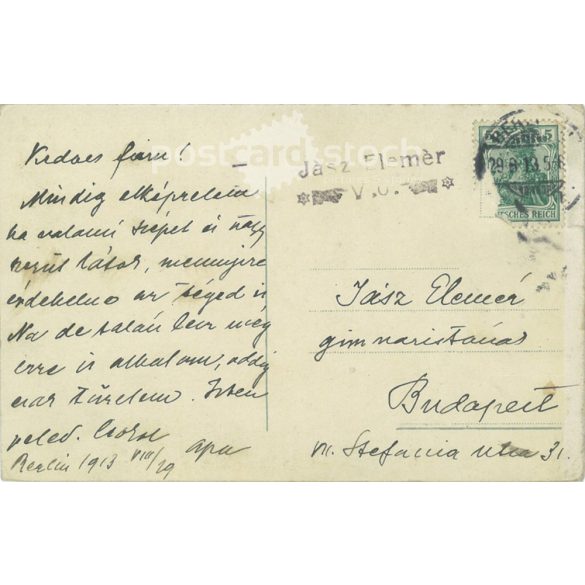 Kedves fiam!
Mindig elképzelem
ha valami szépet és nagy
szerűt látok, mennyire
érdekelne az téged is
Na de talán lesz még
erre is alkalom, addig
csak türelem. Isten
veled. Csókol
apa
Berlin 1913 VIII/29
postcard stock
Jász Elemèr
V.o.
29.8.13.5-6
DEUTSCHES REICH
5
Jász Elemér
gimnazista úr
Budapest
VII. Stefania utca 31.